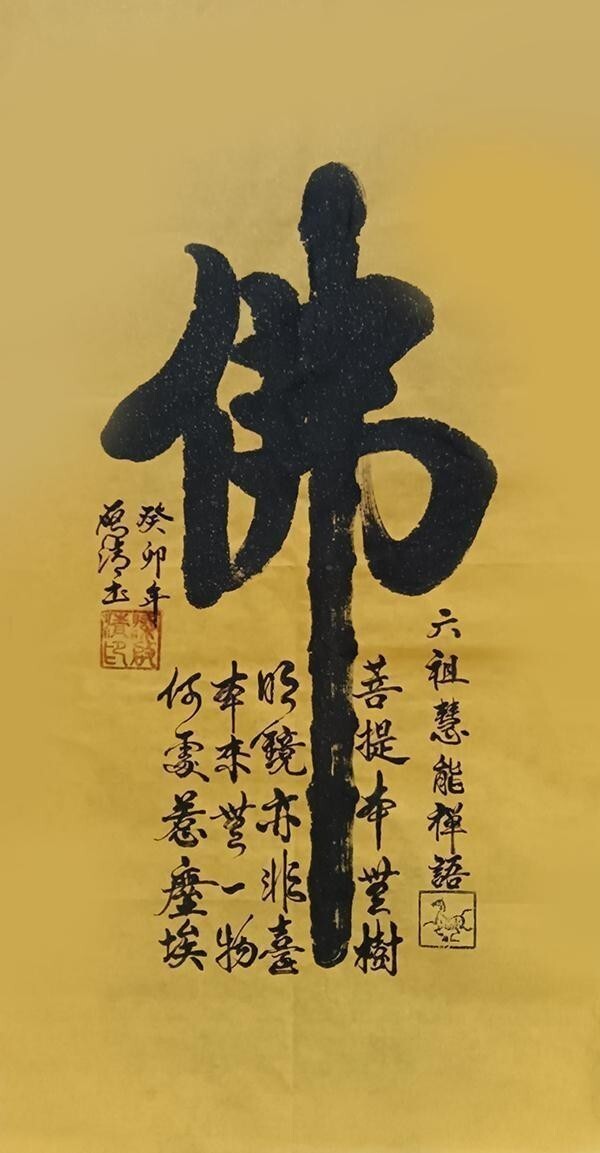 佛
六祖慧能禅語
菩提本無樹
明鏡亦非臺
本来無一物
何處惹塵埃
癸卯年
啟清书